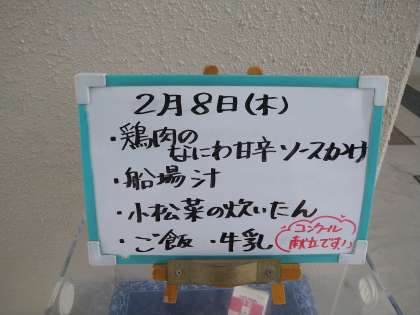 2月8日(木)
・鶏肉の
なにわ甘辛ソースかけ
・船場汁
・小松菜の炊いたん
・ご飯 ・牛乳
コンクール
献立です!